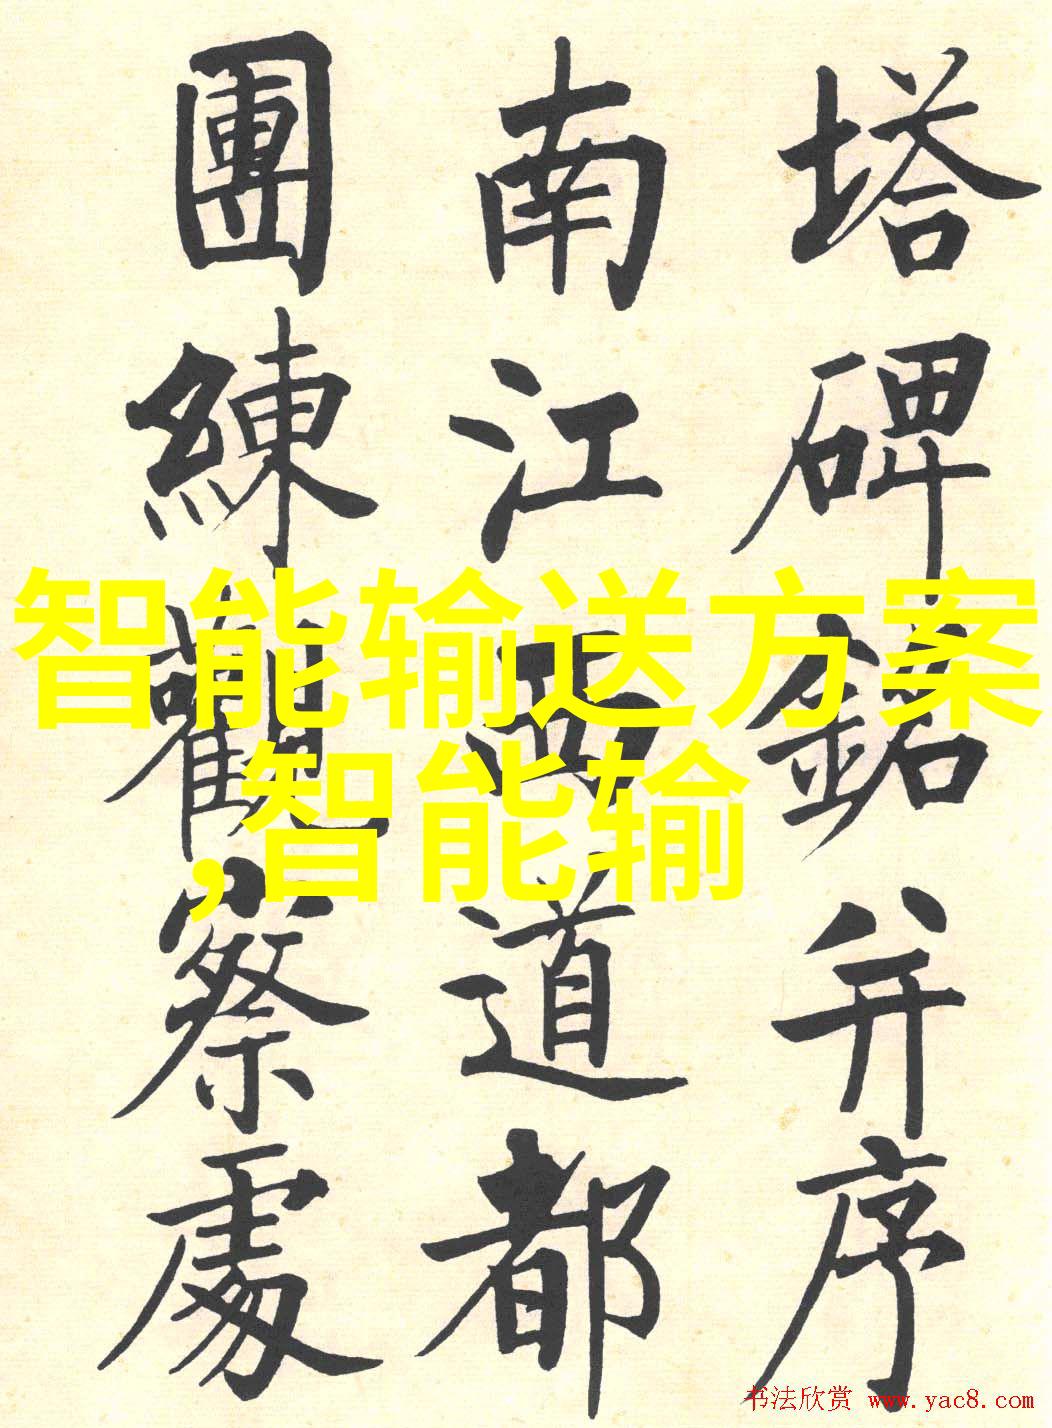 塔碑銘并序
南江西道都
團練觀察處
智能输送方案
,智能输
书法欣赏 www.yac8.com